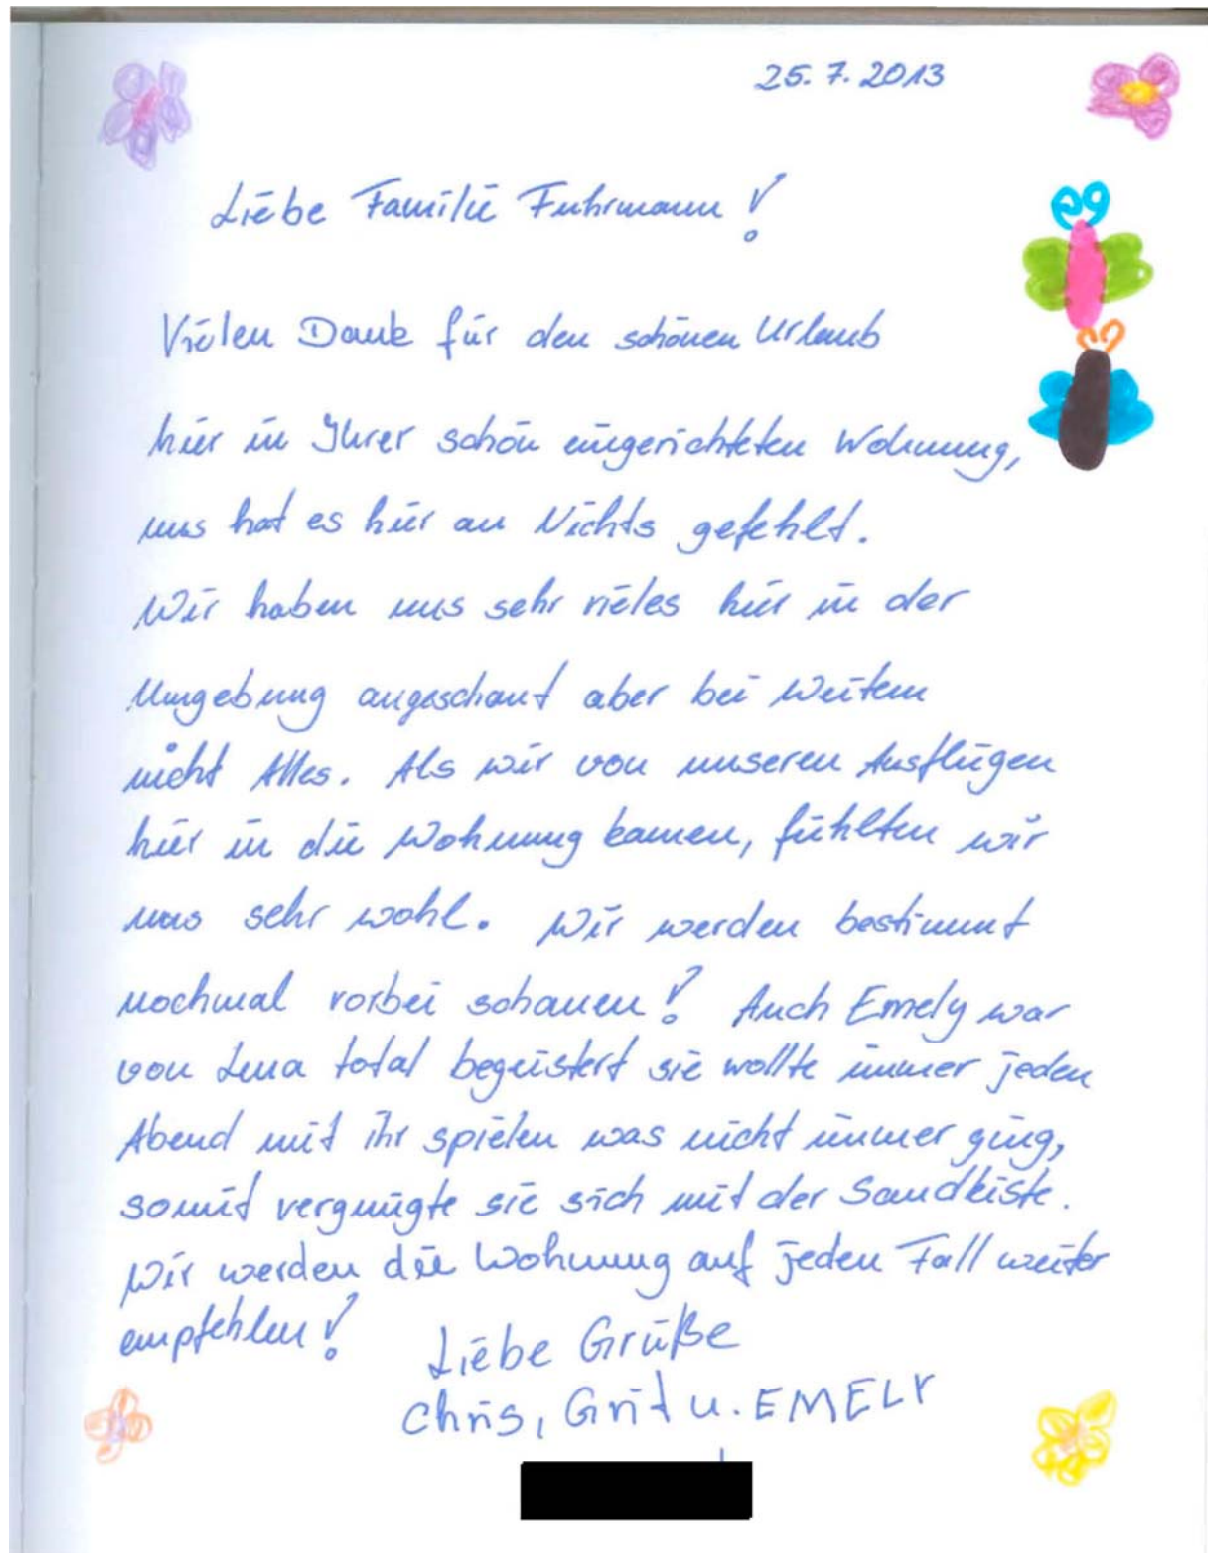 25.7.2013
Liebe Familie Fuhrmann!
Vielen Dank für den schönen Urlaub
hier in Ihrer schön eingerichteten Wohnung,
uns hat es hier an Nichts gefehlt.
Wir haben uns sehr vieles hier in der
Umgebung angeschaut aber bei weitem
nicht Alles. Als wir von unseren Ausflügen
hier in die Wohnung kamen, fühlten wir
uns sehr wohl. Wir werden bestimmt
nochmal vorbei schauen! Auch Emely war
von Lena total begeistert sie wollte immer jeden
Abend mit ihr spielen was nicht immer ging,
somit vergnügte sie sich mit der Sandkiste.
Wir werden die Wohnung auf jeden Fall weiter
empfehlen!
Liebe Grüße
Chris, Grit u. EMELY